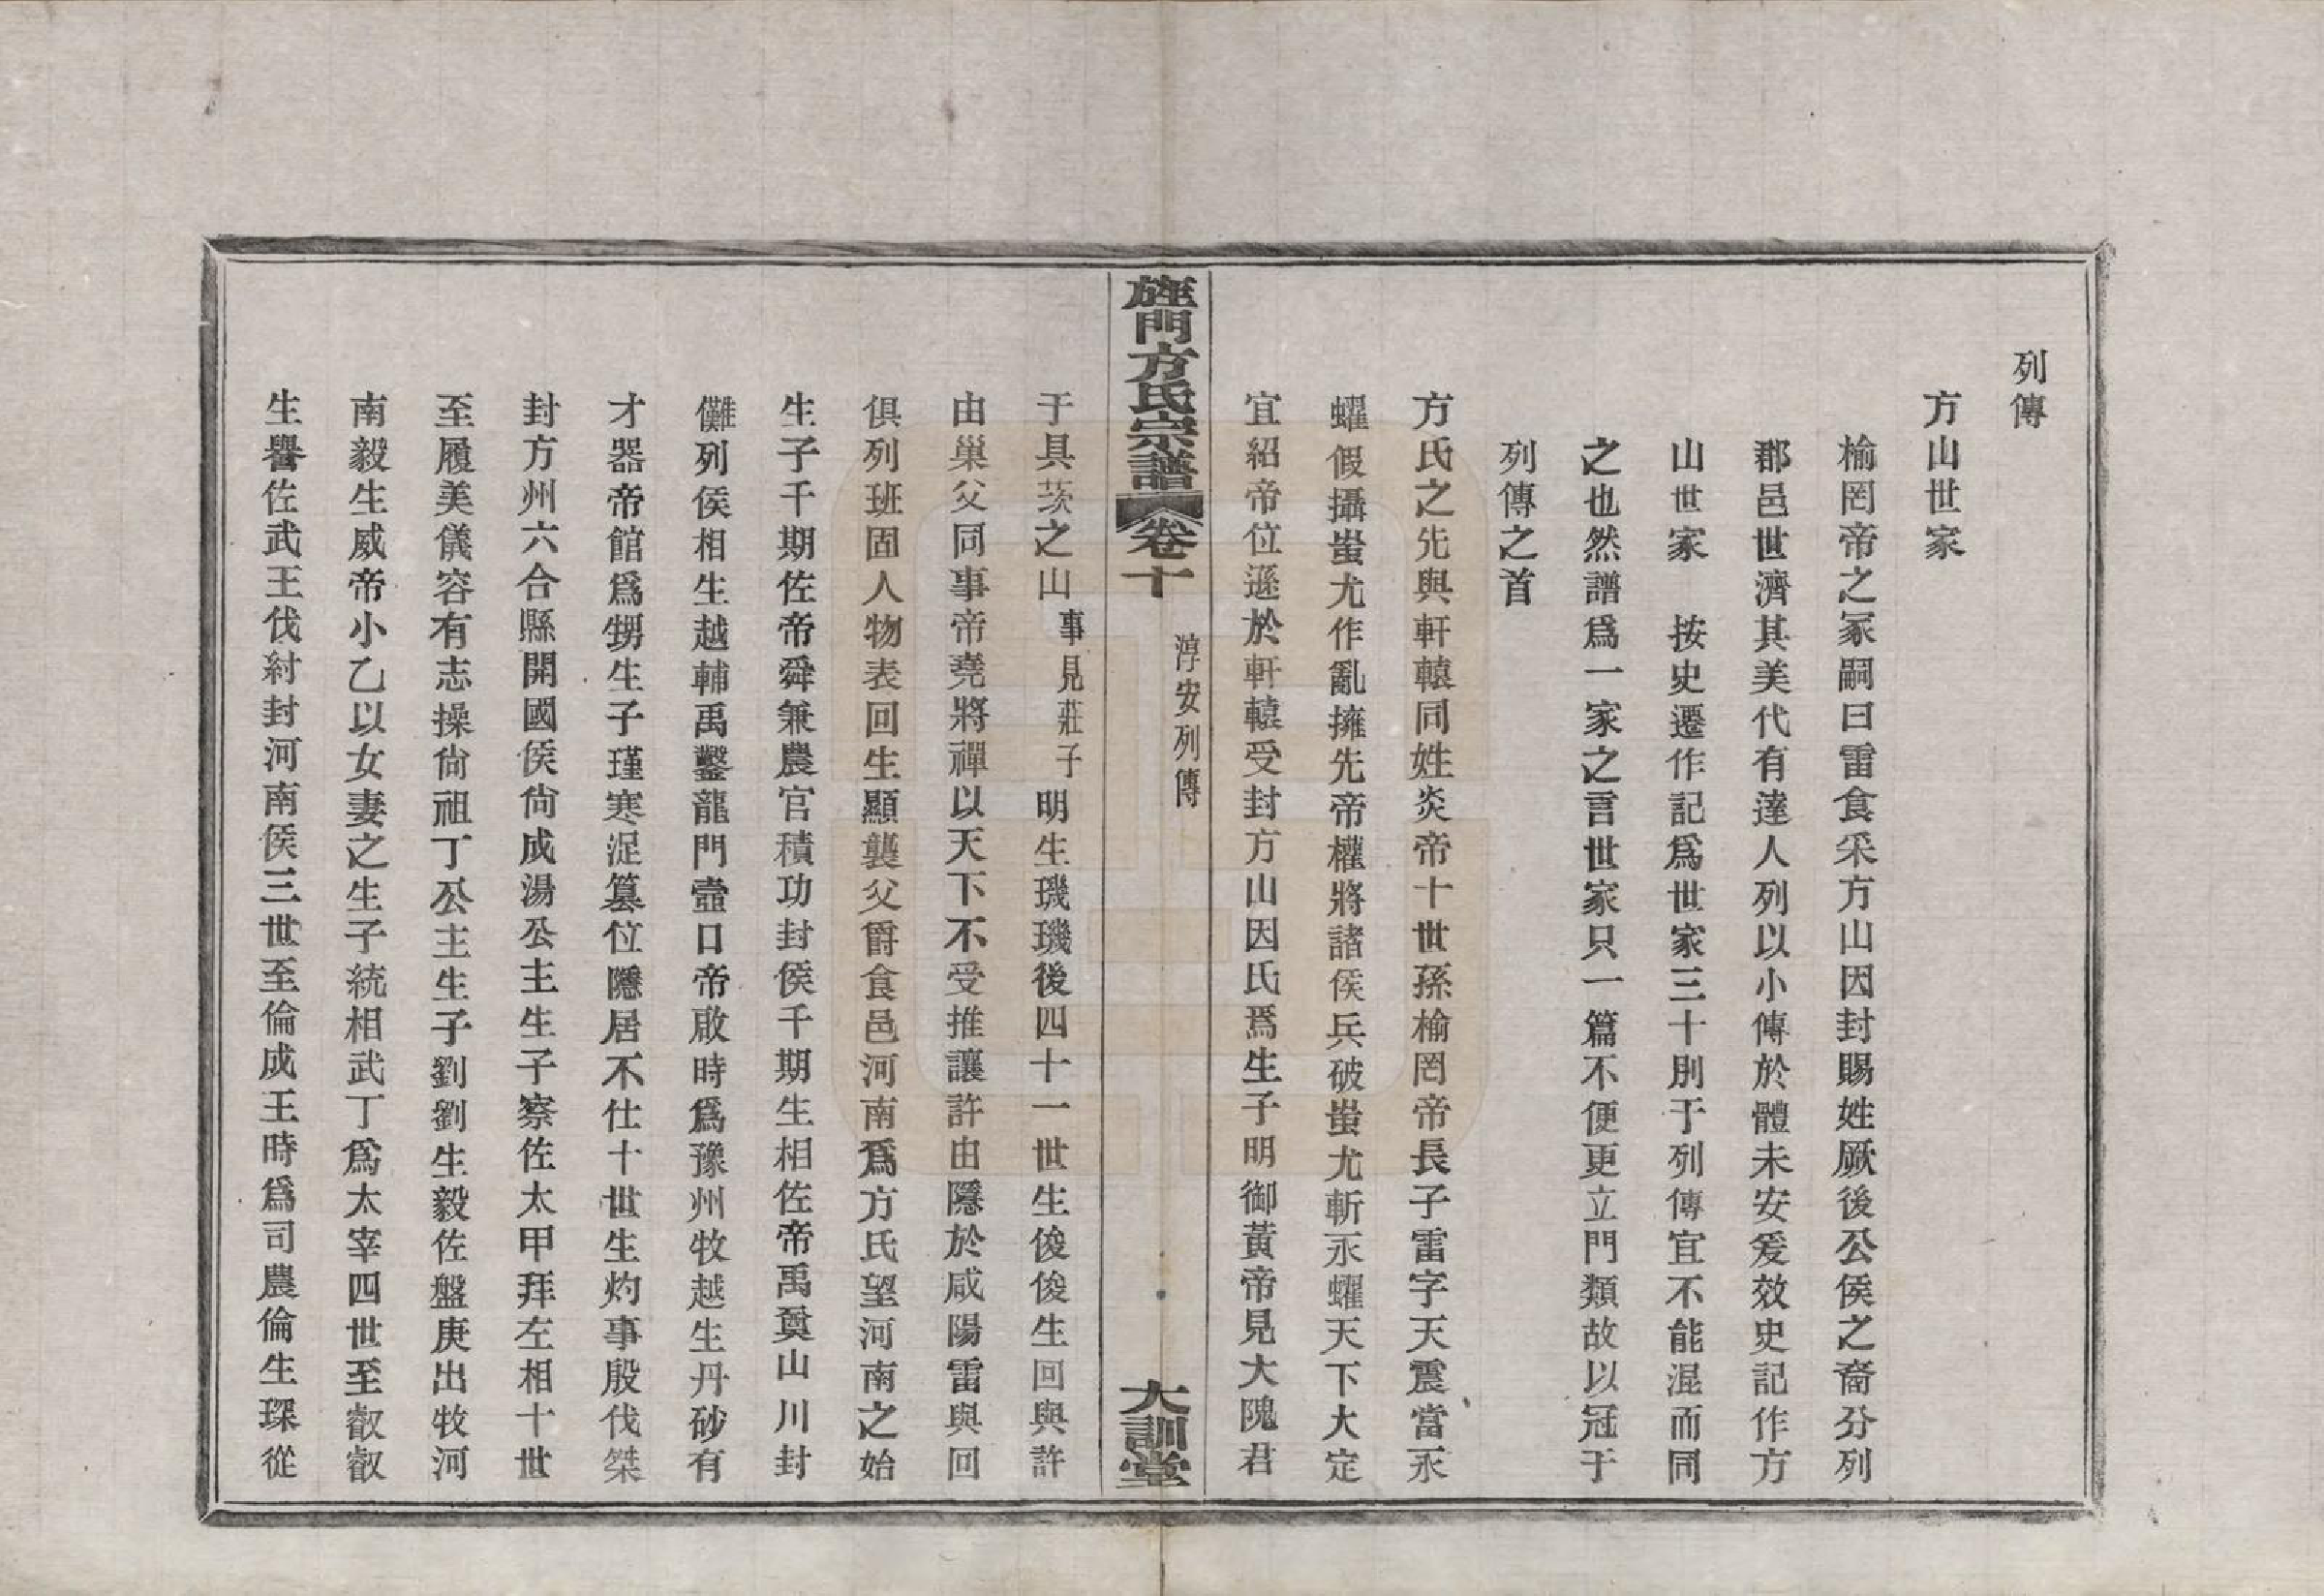 列傳
方山世家
榆罔帝之冢嗣曰雷食采方山因封賜姓厥後公侯之裔分列
郡邑世濟其美代有達人列以小傳於體未安爰效史記作方
山世家　按史遷作記爲世家三十別于列傳宜不能混而同
之也然譜爲一家之言世家只一篇不便更立門類故以冠于
列傳之首
方氏之先與軒轅同姓炎帝十世孫榆罔帝長子雷字天震當永
蠷假攝蚩尤作亂擁先帝權將諸侯兵破蚩尤斬永蠷天下大定
宜紹帝位遜於軒轅受封方山因氏焉生子明御黃帝見大隗君
旌門方氏宗譜　卷十　淳安列傳　大訓堂
于具茨之山事見莊子明生璣璣後四十一世生俊俊生回與許
由巢父同事帝堯將禪以天下不受推讓許由隱於咸陽雷與回
俱列班固人物表回生顯襲父爵食邑河南爲方氏望河南之始
生子千期佐帝舜兼農官積功封侯千期生相佐帝禹奠山川封
儺列侯相生越輔禹鑿龍門壺口帝啟時爲豫州牧越生丹砂有
才器帝館爲甥生子瑾寒浞篡位隱居不仕十世生灼事殷伐桀
封方州六合縣開國侯尙成湯公主生子察佐太甲拜左相十世
至履美儀容有志操尙祖丁公主生子劉劉生毅佐盤庚出牧河
南毅生威帝小乙以女妻之生子統相武丁爲太宰四世至叡叡
生譽佐武王伐紂封河南侯三世至倫成王時爲司農倫生琛從